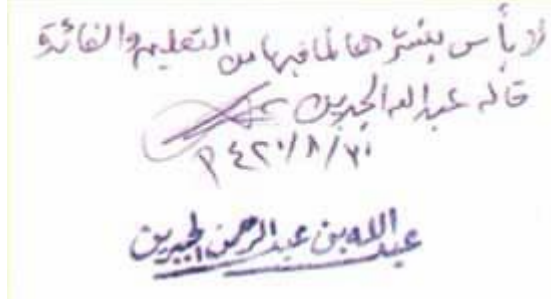 لا بأس بنشرها لما فيها من التعليم والفائدة
قاله عبد الله الجبرين
عبد الله بن عبد الرحمن الجبرين